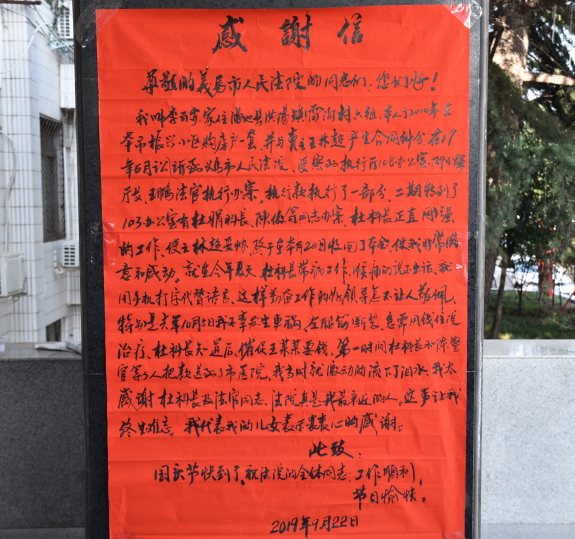 感謝信
尊敬的義馬市人民法院的同志们，您们好！
我叫李百家家住渑池县洪阳镇雪雨村六组，本人于2010年在
本市振兴小区购房产一套，并与卖主王林超产生合同纠纷在17
年6月讼诉函义馬市人民法院，受案后执行厅108办公室，邓小
厅长、王鹏法官执行办案，执行款执行了一部分，二期转到了
103办公室有杜娟科长、陈俊等同志办案，杜科长正直刚强
的工作，使王林超妥协，终于至本月20日收回了本金，使我非常满
意和感动。就在今年夏天杜科长带病工作，喉痛的说不出话，就
用手机打字代替语言，这样勤奋工作的好领导怎不让人敬佩，
特别是去年10月5日我不幸发生車祸，左腿断裂，急需用钱住院
治疗，杜科长知道后，催促王某某要钱，第一时间杜科长和陈警
官等3人把款送到了市医院，我当时就激动的流下了泪水，我太
感谢杜科长及法官同志，法院真是我最亲近的人，这事让我
终生难忘，我代表我的儿女表示衷心的感谢。
此致：
国庆节快到了，祝法院的全体同志，工作顺利，
节日愉快。
2019年9月22日